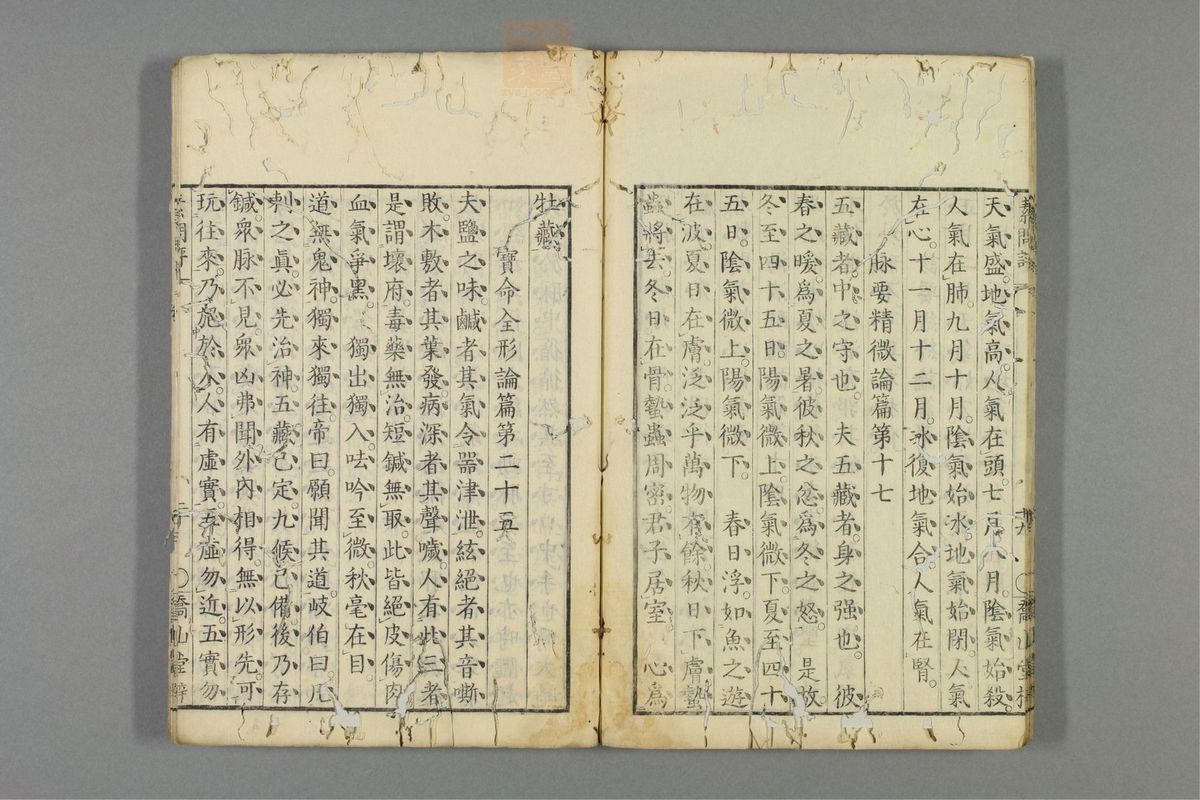 天氣盛。地氣高。人氣在頭。七月八月。陰氣始殺。
人氣在肺。九月十月。陰氣始氷。地氣始閉。人氣
在心。十一月十二月。氷復。地氣合。人氣在腎。
脉要精微論篇第十七
五藏者。中之守也。 夫五藏者。身之强也。 彼
春之暖。爲夏之暑。彼秋之忿。爲冬之怒。 是故
冬至四十五日。陽氣微上。陰氣微下。夏至四十
五日。陰氣微上。陽氣微下。 春日浮。如魚之遊
在波。夏日在膚。泛泛乎萬物有餘。秋日下膚。蟄
蟲將去。冬日在骨。蟄蟲周密。君子居室。 心爲
牡藏。
寶命全形論篇第二十五
夫鹽之味。鹹者。其氣令器津泄。絃絕者。其音嘶
敗。木敷者。其葉發。病深者。其聲噦。人有此三者。
是謂壞府。毒藥無治。短鍼無取。此皆絕皮傷肉。
血氣爭黑。 獨出獨入。呿吟至微。秋毫在目。
道無鬼神。獨來獨往。帝曰。願聞其道。岐伯曰。凡
刺之眞。必先治神。五藏已定。九候已備。後乃存
鍼。衆脉不見。衆凶弗聞。外內相得。無以形先。可
玩往來。乃施於人。人有虛實。五虛勿近。五實勿